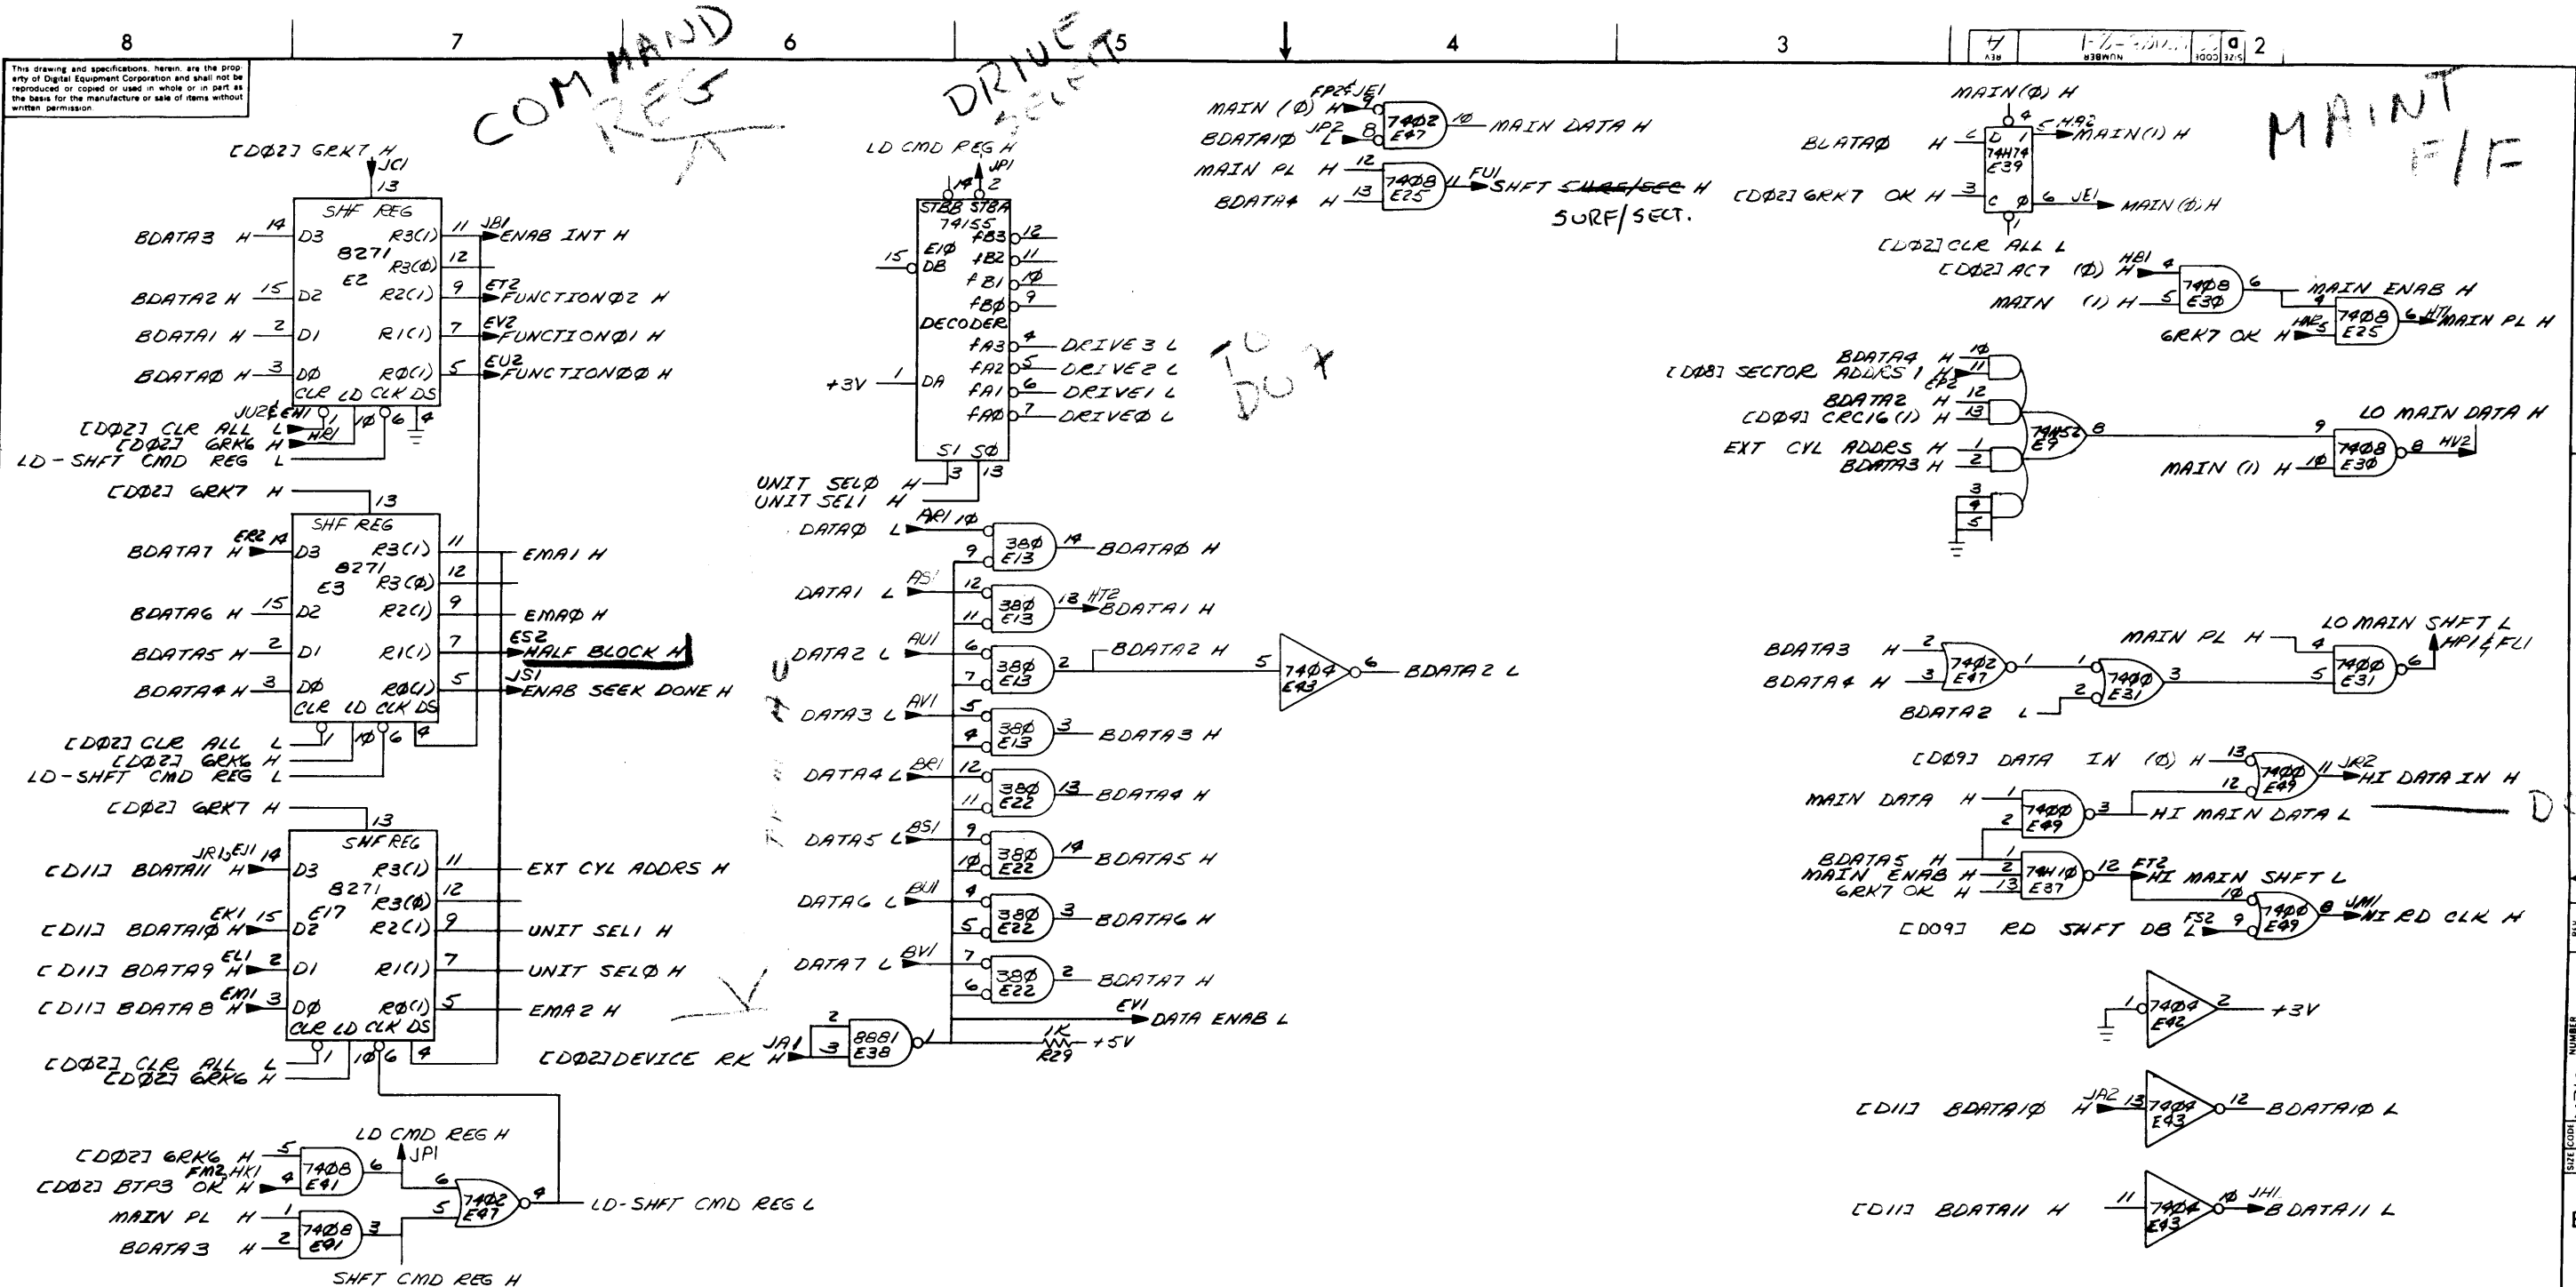 8 7 6 5 4 3 2
This drawing and specifications, herein, are the prop-
erty of Digital Equipment Corporation and shall not be
reproduced or copied or used in whole or in part as
the basis for the manufacture or sale of items without
written permission.
COMMAND
REG
DRIVE
SELECT
MAINT
F/F
REV
NUMBER
SIZE CODE
D
[DØ2] GRK7 H
JC1
13
SHF REG
8271
E2
BDATA3 H 14 D3 R3(1) 11 JB1 ENAB INT H
R3(Ø) 12
BDATA2 H 15 D2 R2(1) 9 ET2 FUNCTIONØ2 H
BDATA1 H 2 D1 R1(1) 7 EV2 FUNCTIONØ1 H
BDATAØ H 3 DØ RØ(1) 5 EU2 FUNCTIONØØ H
CLR LD CLK DS
JU2 & EH1 1 1Ø 6 4
[DØ2] CLR ALL L
[DØ2] GRK6 H HR1
LD-SHFT CMD REG L
[DØ2] GRK7 H
13
SHF REG
8271
E3
BDATA7 H ER2 14 D3 R3(1) 11 EMA1 H
R3(Ø) 12
BDATA6 H 15 D2 R2(1) 9 EMAØ H
BDATA5 H 2 D1 R1(1) 7 ES2 HALF BLOCK H
BDATA4 H 3 DØ RØ(1) 5 JS1 ENAB SEEK DONE H
CLR LD CLK DS
1 1Ø 6 4
[DØ2] CLR ALL L
[DØ2] GRK6 H
LD-SHFT CMD REG L
[DØ2] GRK7 H
13
SHF REG
8271
E17
[D11] BDATA11 H JR1,EJ1 14 D3 R3(1) 11 EXT CYL ADDRS H
R3(Ø) 12
[D11] BDATA1Ø H EK1 15 D2 R2(1) 9 UNIT SEL1 H
[D11] BDATA9 H EL1 2 D1 R1(1) 7 UNIT SELØ H
[D11] BDATA8 H EM1 3 DØ RØ(1) 5 EMA2 H
CLR LD CLK DS
1 1Ø 6 4
[DØ2] CLR ALL L
[DØ2] GRK6 H
LD CMD REG H
JP1
[DØ2] GRK6 H 5
FM2,HK1
[DØ2] BTP3 OK H 4
7408 E41 6
MAIN PL H 1
BDATA3 H 2
7408 E41 3
SHFT CMD REG H
6 5 7402 E47 4 LD-SHFT CMD REG L
LD CMD REG H
JP1
14 2
STBB STBA
74155
E1Ø
15 DB
fB3 12
fB2 11
fB1 1Ø
fBØ 9
DECODER
fA3 4 DRIVE3 L
fA2 5 DRIVE2 L
+3V 1 DA fA1 6 DRIVE1 L
fAØ 7 DRIVEØ L
S1 SØ
3 13
UNIT SELØ H
UNIT SEL1 H
TO
DATAØ L AR1 1Ø 9 38Ø E13 14 BDATAØ H
DATA1 L AS1 12 11 38Ø E13 13 HT2 BDATA1 H
DATA2 L AU1 6 7 38Ø E13 2 BDATA2 H
5 7404 E43 6 BDATA2 L
DATA3 L AV1 5 4 38Ø E13 3 BDATA3 H
DATA4 L BR1 12 11 38Ø E22 13 BDATA4 H
DATA5 L BS1 9 1Ø 38Ø E22 14 BDATA5 H
DATA6 L BU1 4 5 38Ø E22 3 BDATA6 H
DATA7 L BV1 7 6 38Ø E22 2 BDATA7 H
EV1 DATA ENAB L
[DØ2] DEVICE RK H JA1 2 3 8881 E38 1
1K R29 +5V
FP2 & JE1
MAIN (Ø) H 9
BDATA1Ø L JP2 8
7402 E47 1Ø MAIN DATA H
MAIN PL H 12
BDATA4 H 13
7408 E25 11 FU1 SHFT SURF/SEC H
SURF/SECT.
MAIN(Ø) H
4
BDATAØ H 2 D 1 5 HA2 MAIN(1) H
74H74
E39
[DØ2] GRK7 OK H 3 C Ø 6 JE1 MAIN(Ø) H
1
[DØ2] CLR ALL L
[DØ2] AC7 (Ø) H HB1 4
MAIN (1) H 5
7408 E3Ø 6 MAIN ENAB H
4
GRK7 OK H 5
7408 E25 6 HT1 MAIN PL H
BDATA4 H 1Ø
[DØ8] SECTOR ADDRS 1 H 11
EP2
BDATA2 H 12
[DØ4] CRC16(1) H 13
EXT CYL ADDRS H 1
BDATA3 H 2
3
4
5
74H52 E9 8
LO MAIN DATA H
9
MAIN (1) H 1Ø
7408 E3Ø 8 HV2
BDATA3 H 2
BDATA4 H 3
7402 E47 1
1
BDATA2 L 2
7400 E31 3
LO MAIN SHFT L
MAIN PL H 4
5
7400 E31 6 HP1 & FL1
[DØ9] DATA IN (Ø) H 13
12
7400 E49 11 JR2 HI DATA IN H
MAIN DATA H 1
2
7400 E49 3 HI MAIN DATA L
BDATA5 H 1
MAIN ENAB H 2
GRK7 OK H 13
74H1Ø E37 12 FT2 HI MAIN SHFT L
1Ø
[DO9] RD SHFT DB L FS2 9
7400 E49 8 JM1 HI RD CLK H
1 7404 E42 2 +3V
[D11] BDATA1Ø H JA2 13 7404 E43 12 BDATA1Ø L
[D11] BDATA11 H 11 7404 E43 1Ø JH1 BDATA11 L
NUMBER
SIZE CODE